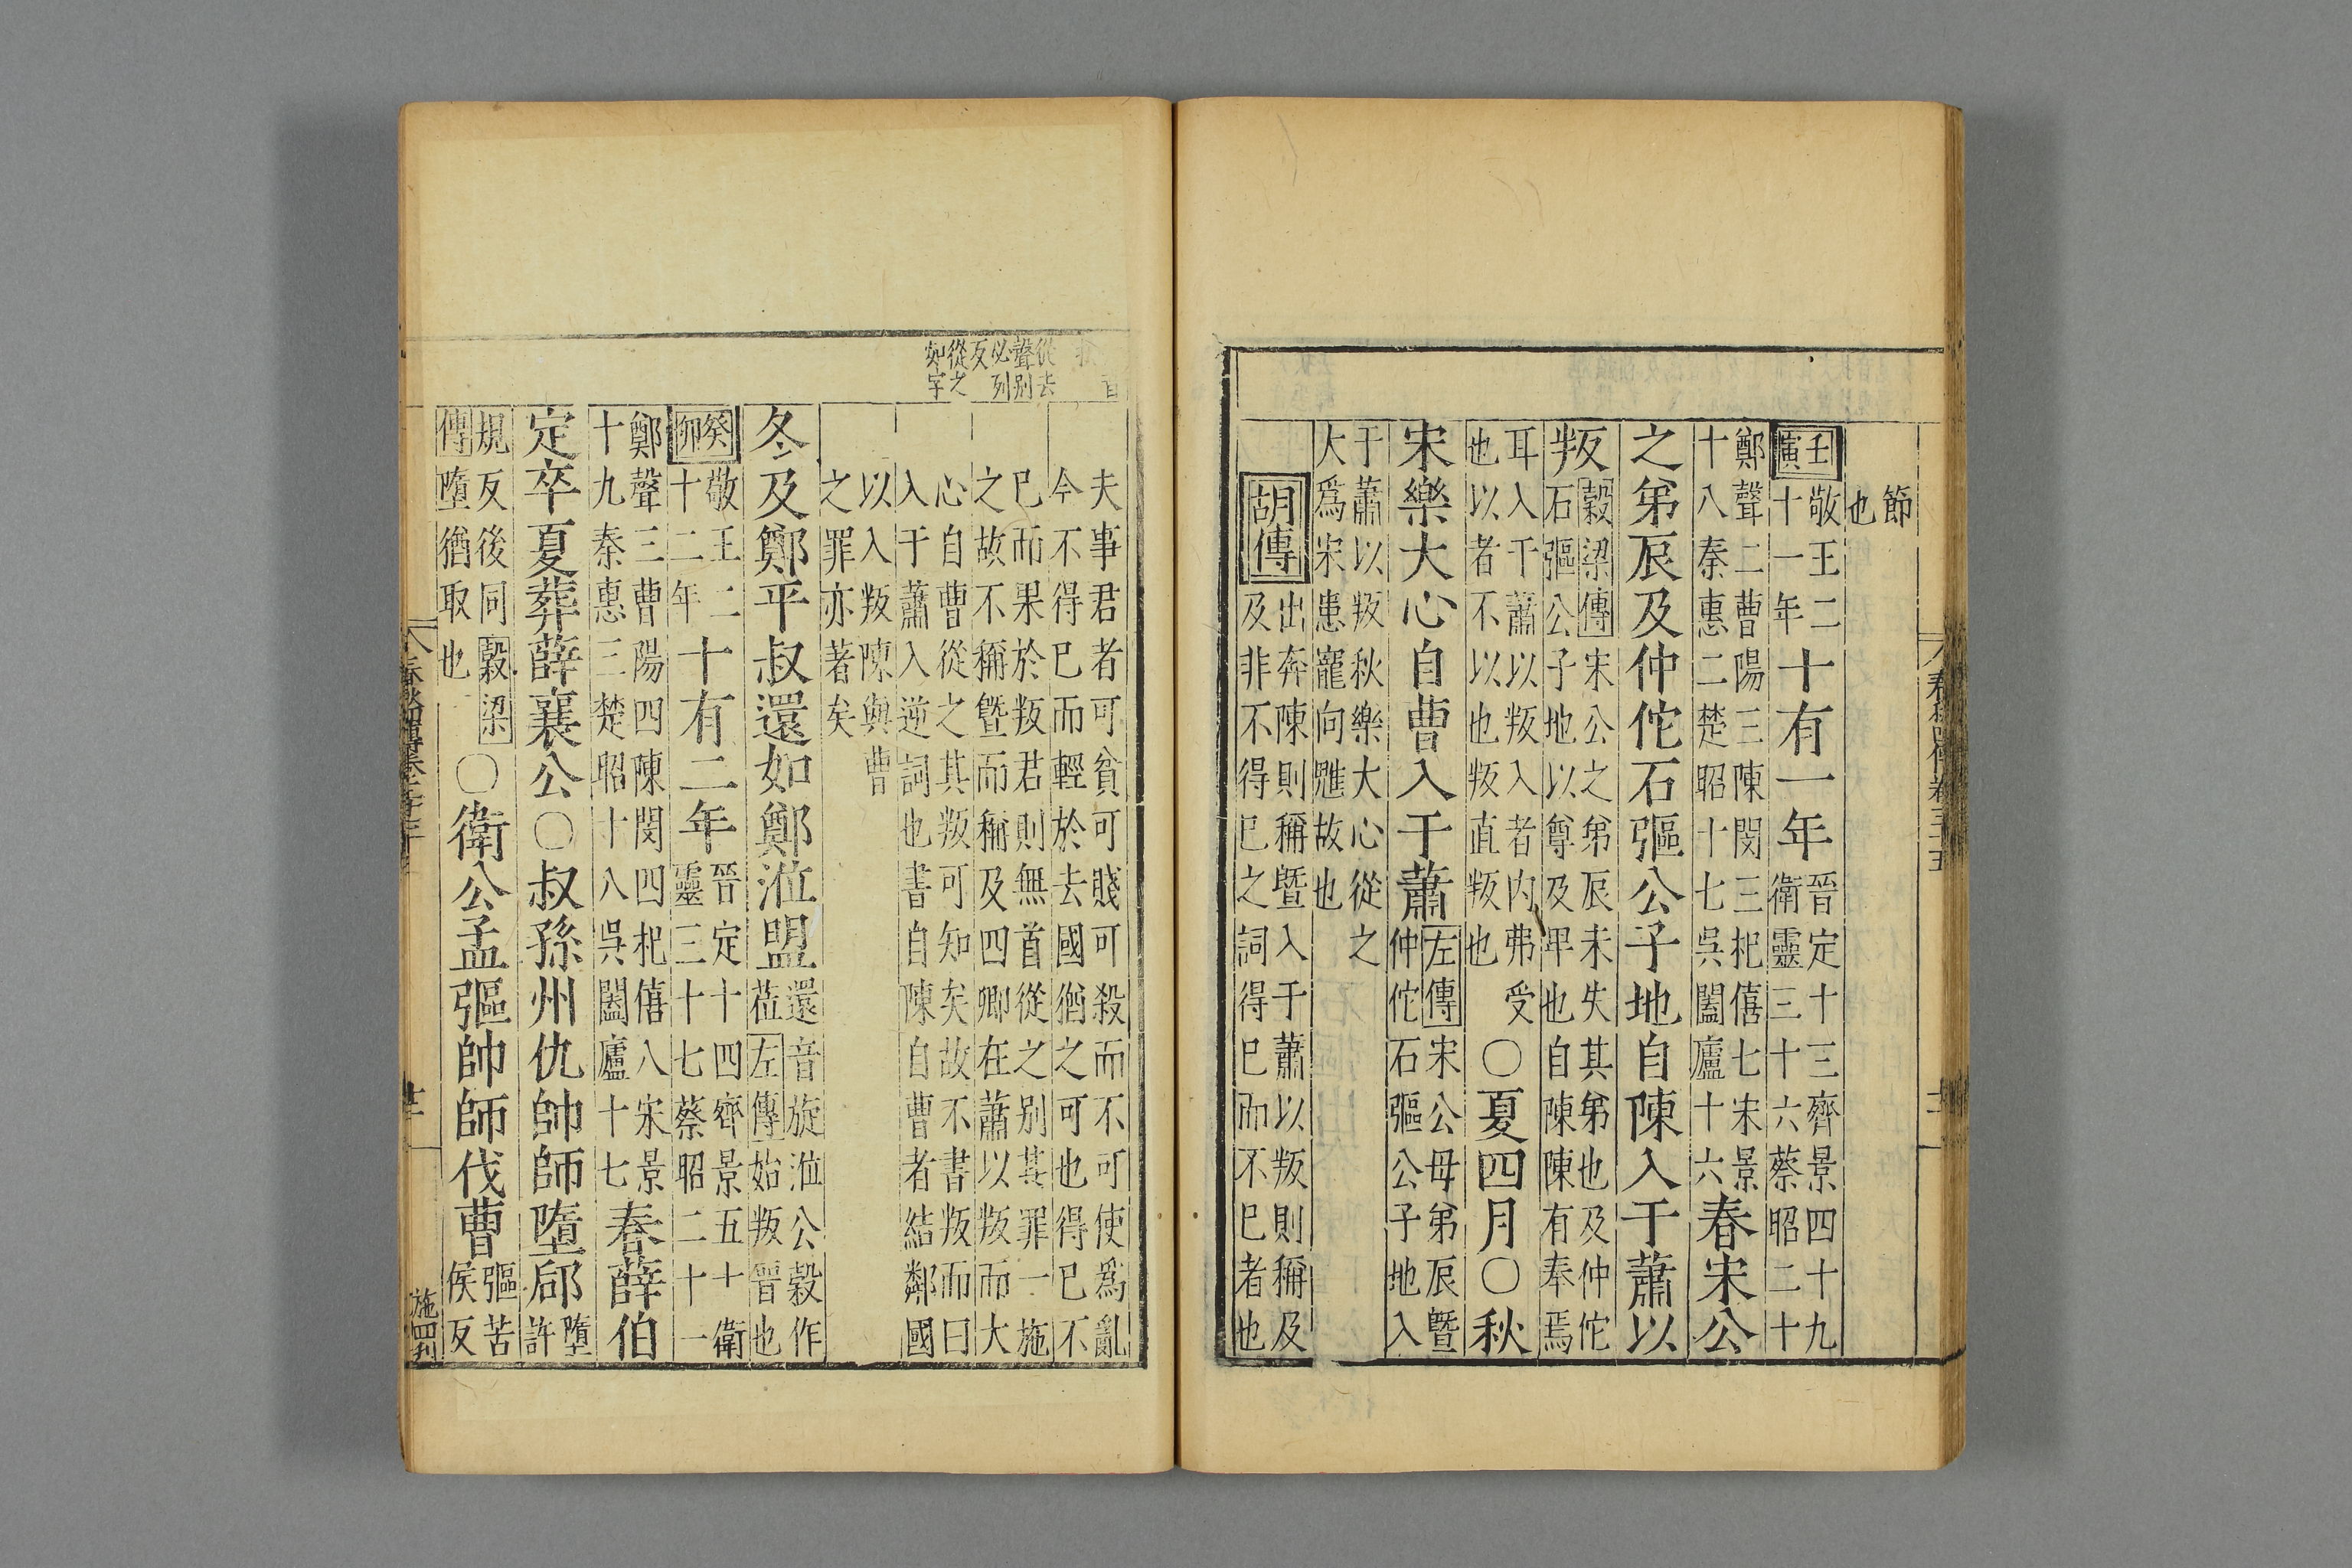 節
也
壬寅敬王二十一年十有一年晉定十三齊景四十九衛靈三十六蔡昭二十
鄭聲二曹陽三陳閔三杞僖七宋景十八秦惠二楚昭十七吳闔廬十六春宋公
之弟辰及仲佗石彄公子地自陳入于蕭以
叛穀梁傳宋公之弟辰未失其弟也及仲佗石彄公子地以尊及卑也自陳陳有奉焉
耳入于蕭以叛入者內弗受也以者不以也叛直叛也〇夏四月〇秋
宋樂大心自曹入于蕭左傳宋公母弟辰暨仲佗石彄公子地入
于蕭以叛秋樂大心從之大爲宋患寵向魋故也
胡傳出奔陳則稱暨入于蕭以叛則稱及及非不得已之詞得已而不已者也
從去聲别必列反從之如字
夫事君者可貧可賤可殺而不可使爲亂
今不得已而輕於去國猶之可也得已不
已而果於叛君則無首從之别其罪一施
之故不稱暨而稱及四卿在蕭以叛而大
心自曹從之其叛可知矣故不書叛而曰
入于蕭入逆詞也書自陳自曹者結鄰國
以入叛陳與曹
之罪亦著矣
冬及鄭平叔還如鄭涖盟還音旋涖公穀作莅左傳始叛晉也
癸卯敬王二十二年十有二年晉定十四齊景五十衛靈三十七蔡昭二十一
鄭聲三曹陽四陳閔四杞僖八宋景十九秦惠三楚昭十八吳闔廬十七春薛伯
定卒夏葬薛襄公〇叔孫州仇帥師墮郈墮許
規反後同穀梁傳墮猶取也〇衛公孟彄帥師伐曹彄苦侯反
施四刊